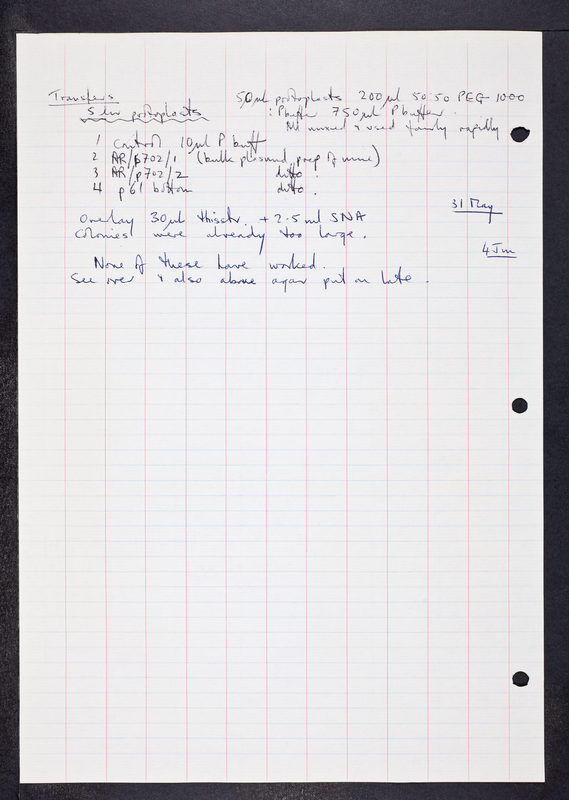 Transfers 50µl protoplasts 200µl 50:50 PEG 1000
S liv protoplasts : P buffer 750µl P buffer.
All mixed & used fairly rapidly
1 Control 10µl P buff
2 AR/p702/1 (bulk plasmid prep of mine)
3 AR/p702/2 ditto.
4 p61 bottom ditto.
31 May
Overlay 30µl thiostr. + 2.5ml SNA
Colonies were already too large.
4 Jun
None of these have worked.
See over & also above agar put on late.